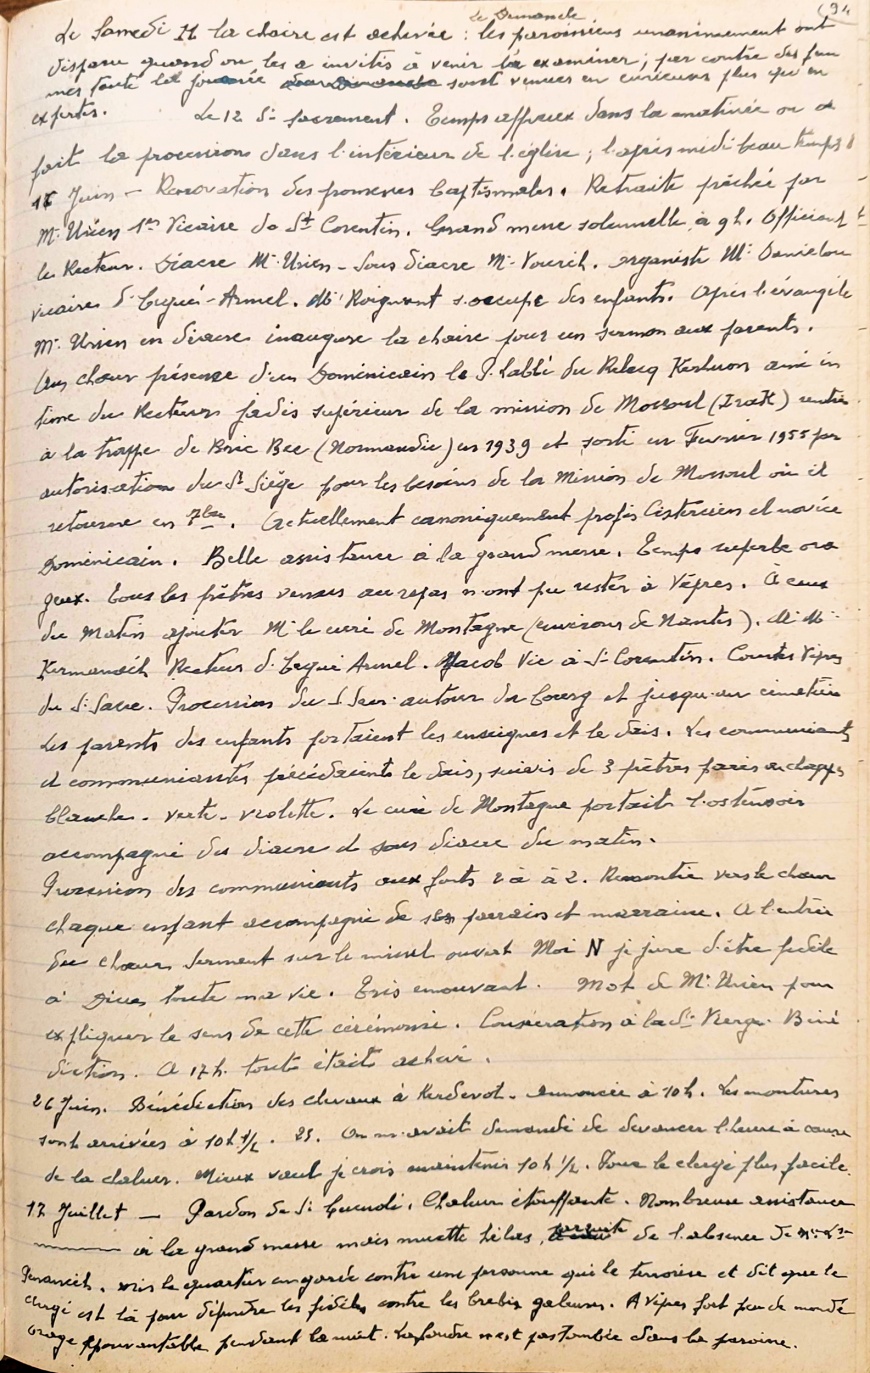 (94
le Dimanche
Le Samedi 11 la chaire est achevée : les paroissiens unanimement ont
disparu quand on les a invités à venir la examiner ; par contre des fem
mes toute la journée sont venues en curieuses plus qu'en
expertes. Le 12 St Sacrement. Temps affreux dans la matinée on a
fait la procession dans l'intérieur de l'église ; l'après midi beau temps
Juin - Renovation des promesses baptismales. Retraite prêchée par
Mr Urien 1er Vicaire de St Corentin. Grand messe solennelle à 9h. Officiant
le Recteur. Diacre Mr Urien - Sous diacre Mr Vourch. organiste Mr Danielou
vicaire d'Ergué-Armel. Mr Roignant s'occupe des enfants. Après l'évangile
Mr Urien en diacre inaugure la chaire pour un sermon aux parents.
Au chœur présence d'un Dominicain le P. Labbé du Relecq Kerhuon ami in
time du Recteur jadis supérieur de la mission de Mossoul (Irak) rentré
à la trappe de Bric Bec (Normandie) en 1939 et sorti en Fevrier 1955 par
autorisation du St Siège pour les besoins de la Mission de Mossoul où il
retourne en 7bre. (Actuellement canoniquement profès Cistercien et novice
Dominicain. Belle assistance à la grand messe. Temps superbe ora
geux. Tous les prêtres venus au repas n'ont pu rester à Vêpres. À ceux
du Matin ajouter Mr le curé de Montagne (environs de Nantes). M. Mr
Kermanach Recteur d'Ergué Armel. Jacob Vic à St Corentin. Courtes Vêpres
du St Sacr. Procession du S Sacr. autour du bourg et jusqu'au cimetière
Les parents des enfants portaient les enseignes et le dais. Les communiants
et communiantes précédaient le dais, suivis de 3 prêtres parés en chappes
blanche - verte - violette. Le curé de Montagne portait l'ostensoir
accompagné du diacre et sous diacre du matin.
Procession des communiants aux fonts 2 à à 2. Remontée vers le chœur
chaque enfant accompagné de ses parrain et marraine. A l'entrée
du chœur serment sur le missel ouvert Moi N je jure d'être fidèle
à Dieu toute ma vie. Très émouvant. Mot de Mr Urien pour
expliquer le sens de cette cérémonie. Consécration à la Ste Vierge. Béné
diction. A 17h. tout était achevé.
26 Juin. Bénédiction des chevaux à Kerdevot. annoncée à 10h. Les montures
sont arrivées à 10h 1/2. 23. On m'avait demandé de devancer l'heure à cause
de la chaleur. Mieux vaut je crois maintenir 10h 1/2. Pour le clergé plus facile.
17 Juillet — Pardon de St Guénolé. Chaleur étouffante. Nombreuse assistance
à la grand messe mais muette hélas, de l'absence de
. le quartier en garde contre une personne qui le terrorise et dit que le
clergé est là pour défendre les fidèles contre les brebis galeuses. A vêpres fort peu de monde
orage épouvantable pendant la nuit. La foudre n'est pas tombée dans la paroisse.